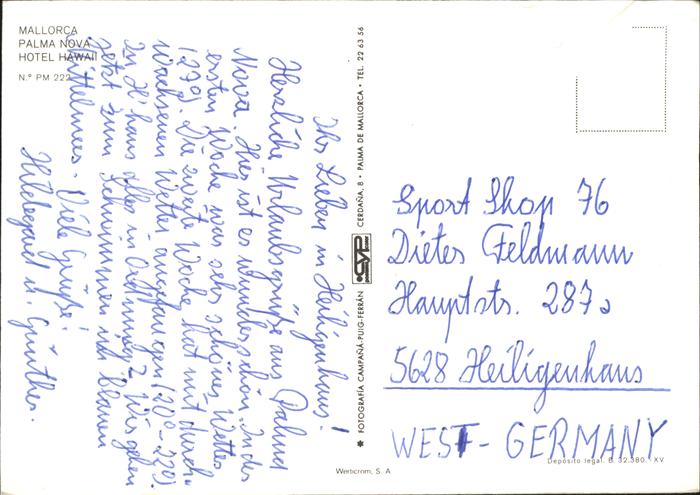 MALLORCA
PALMA NOVA
HOTEL HAWAII
N.º PM 222
Ihr Lieben in Heiligenhaus!
Herzliche Urlaubsgrüße aus Palma
Nova. Hier ist es wunderschön. In der
ersten Woche war sehr schönes Wetter
(27°). Die zweite Woche hat mit durch-
wachsenen Wetter angefangen (20°-22°).
In H'haus alles in Ordnung? Wir gehen
jetzt zum Schwimmen ins blauen
Mittelmeer. Viele Grüße!
Hildegard u. Günther.
✱ FOTOGRAFÍA CAMPAÑÁ-PUIG-FERRÁN
CYP
CERDAÑA, 8 • PALMA DE MALLORCA • TEL. 22 63 56
Sport Shop 76
Dieter Feldmann
Hauptstr. 287a
5628 Heiligenhaus
WEST-GERMANY
Depósito legal B. 32.380-XV
Werticrom, S. A